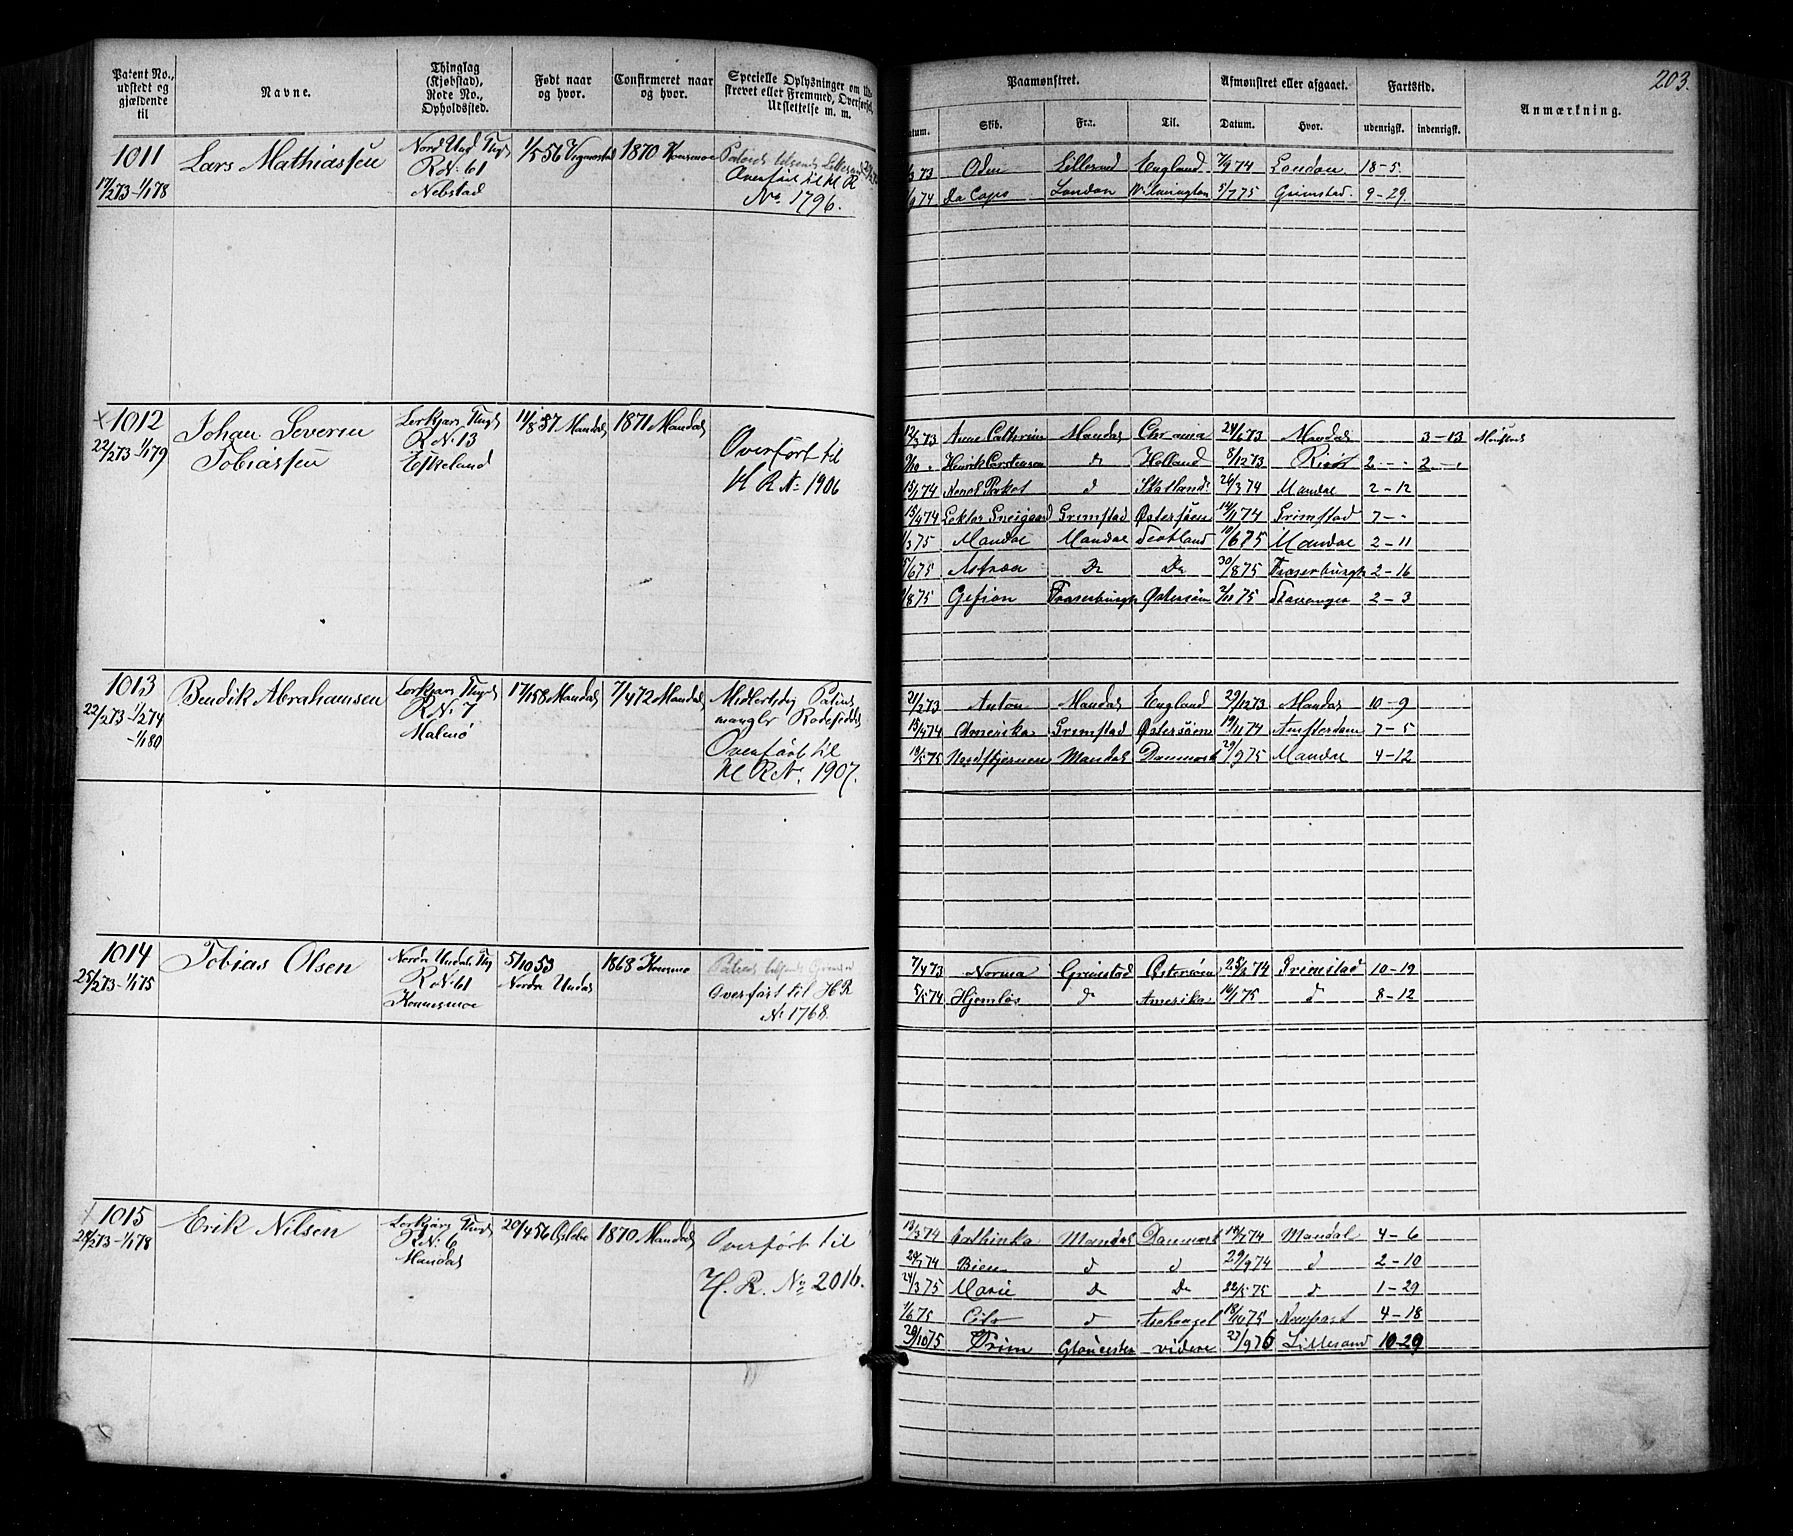 203.
Patent No., udstedt og gjældende til
Navne.
Thinglag (Kjøbstad), Rode No., Opholdssted.
Født naar og hvor.
Confirmeret naar og hvor.
Specielle Oplysninger om Udskrevet eller Fremmed, Overførsel, Udslettelse m. m.
Paamønstret.
Afmønstret eller afgaaet.
Fartstid.
Anmærkning.
Datum. Skib. Fra. Til. Datum. Hvor. udenrigsk. indenrigsk.
1011 Lars Mathiassen
17/2 73 - 1/1 78
R.N: 61
1/5 56 1870
Overført til H R
No. 1796.
73 Odin Lillesand England 7/9 74 London 18-5.
74 Da Capo London 5/7 75 Grimstad 9-29.
1012 Johan Severin
Tobiassen
22/2 73 - 1/1 79
R.N: 13
Eskeland
11/8 57 Mandal 1871 Mandal
Overført til
H R N: 1906
12/5 73 Anne Cathrine Mandal 73 Mandal 3-13
Henrik Carstensen d Holland 8/12 73 2-- 2--
15/1 74 d 26/3 74 Mandal 2-12
15/4 74 Grimstad Østersøen 14/11 74 Grimstad 7--
75 Mandal Mandal Scotland 10/6 75 Mandal 2-11
6 75 Astræa Do Do 30/8 75 Fraserburgh 2-16
8 75 Gefion Fraserburgh Østersøen 2/11 75 Stavanger 2-3
1013 Bendik Abrahamsen
22/2 73 - 1/2 74
- 1/1 80
R.N: 7
Malmø
17/1 58 Mandal 7/4 72 Mandal
Midlertidig Patent
mangler Rodeseddel
Overført til
H R N. 1907.
21/2 73 Anton Mandal England 29/12 73 Mandal 10-9
15/4 74 Amerika Grimstad Østersøen 19/11 74 Amsterdam 7-5
18/5 75 Nordstjernen Mandal Danmark 29/9 75 Mandal 4-12
1014 Tobias Olsen
25/2 73 - 1/1 75
Nordre Undals Thg
R.N: 61
Konnesmoe
5/10 53 Nordre Undal
1868
Overført til H R
N: 1768.
7/4 73 Norma Grimstad Østersøen 74 Grimstad 10-19
5/5 74 Hjemløs d Amerika 16/1 75 d 8-12
1015 Erik Nilsen
28/2 73 - 1/1 78
R.N: 6
Mandal
20/4 56 1870 Mandal
Overført til
H. R. No 2016.
13/3 74 Cathinka Mandal Danmark 19/7 74 Mandal 4-6
20/7 74 Bien d d 29/9 74 d 2-10
24/3 75 Marie Do Do 22/5 75 d 1-29
1/6 75 d Archangel 18/10 75 Newport 4-18
29/10 75 Gloucester videre 27/9 76 Lillesand 10-29